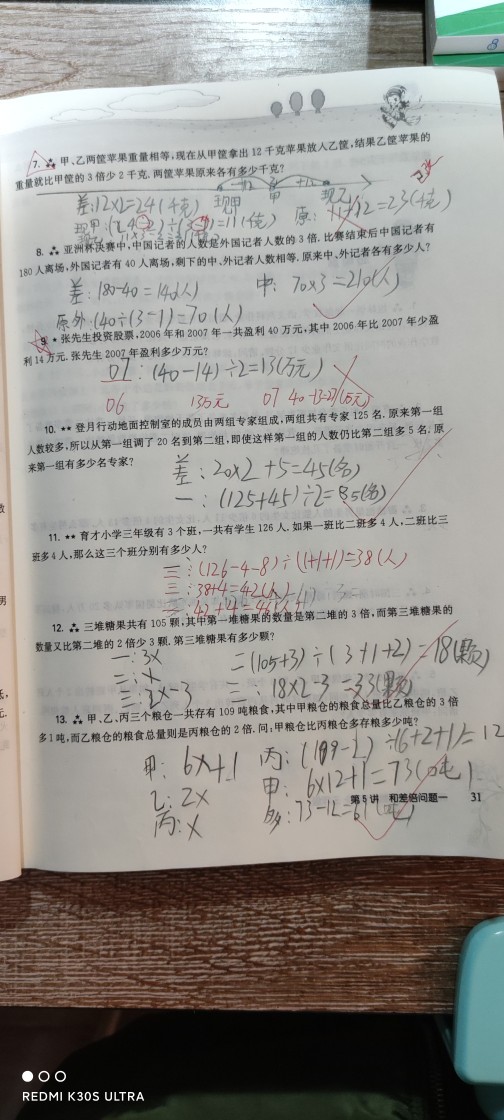 7. 甲、乙两筐苹果重量相等,现在从甲筐拿出 12 千克苹果放入乙筐,结果乙筐苹果的
重量就比甲筐的 3 倍少 2 千克. 两筐苹果原来各有多少千克?
差:12×2=24(千克) 现甲 甲 现乙
=11(千克) 原: 12=23(千克)
8. 亚洲杯决赛中,中国记者的人数是外国记者人数的 3 倍. 比赛结束后中国记者有
180 人离场,外国记者有 40 人离场,剩下的中、外记者人数相等. 原来中、外记者各有多少人?
差:180-40=140(人) 中:70×3=210(人)
原外:140÷(3-1)=70(人)
9. 张先生投资股票,2006 年和 2007 年一共盈利 40 万元,其中 2006 年比 2007 年少盈
利 14 万元. 张先生 2007 年盈利多少万元?
07:(40-14)÷2=13(万元)
06 13万元 07 40-13=27(万元)
10. ★★ 登月行动地面控制室的成员由两组专家组成,两组共有专家 125 名. 原来第一组
人数较多,所以从第一组调了 20 名到第二组,即使这样第一组的人数仍比第二组多 5 名. 原
来第一组有多少名专家?
差:20×2+5=45(名)
一:(125+45)÷2=85(名)
11. ★★ 育才小学三年级有 3 个班,一共有学生 126 人. 如果一班比二班多 4 人,二班比三
班多 4 人,那么这三个班分别有多少人?
三:(126-4-8)÷(1+1+1)=38(人)
38+4=42(人)
42+4=46(人)
12. 三堆糖果共有 105 颗,其中第一堆糖果的数量是第二堆的 3 倍,而第三堆糖果的
数量又比第二堆的 2 倍少 3 颗. 第三堆糖果有多少颗?
一:3x 二(105+3)÷(3+1+2)=18(颗)
二:x
三:2x-3 三:18×2-3=33(颗)
13. 甲、乙、丙三个粮仓一共存有 109 吨粮食,其中甲粮仓的粮食总量比乙粮仓的 3 倍
多 1 吨,而乙粮仓的粮食总量则是丙粮仓的 2 倍. 问:甲粮仓比丙粮仓多存粮多少吨?
甲:6x+1 丙:(109-1)÷(6+2+1)=12
乙:2x 甲:6×12+1=73(吨)
丙:x 多:73-12=61(吨)
第 5 讲 和差倍问题一 31
8
REDMI K30S ULTRA